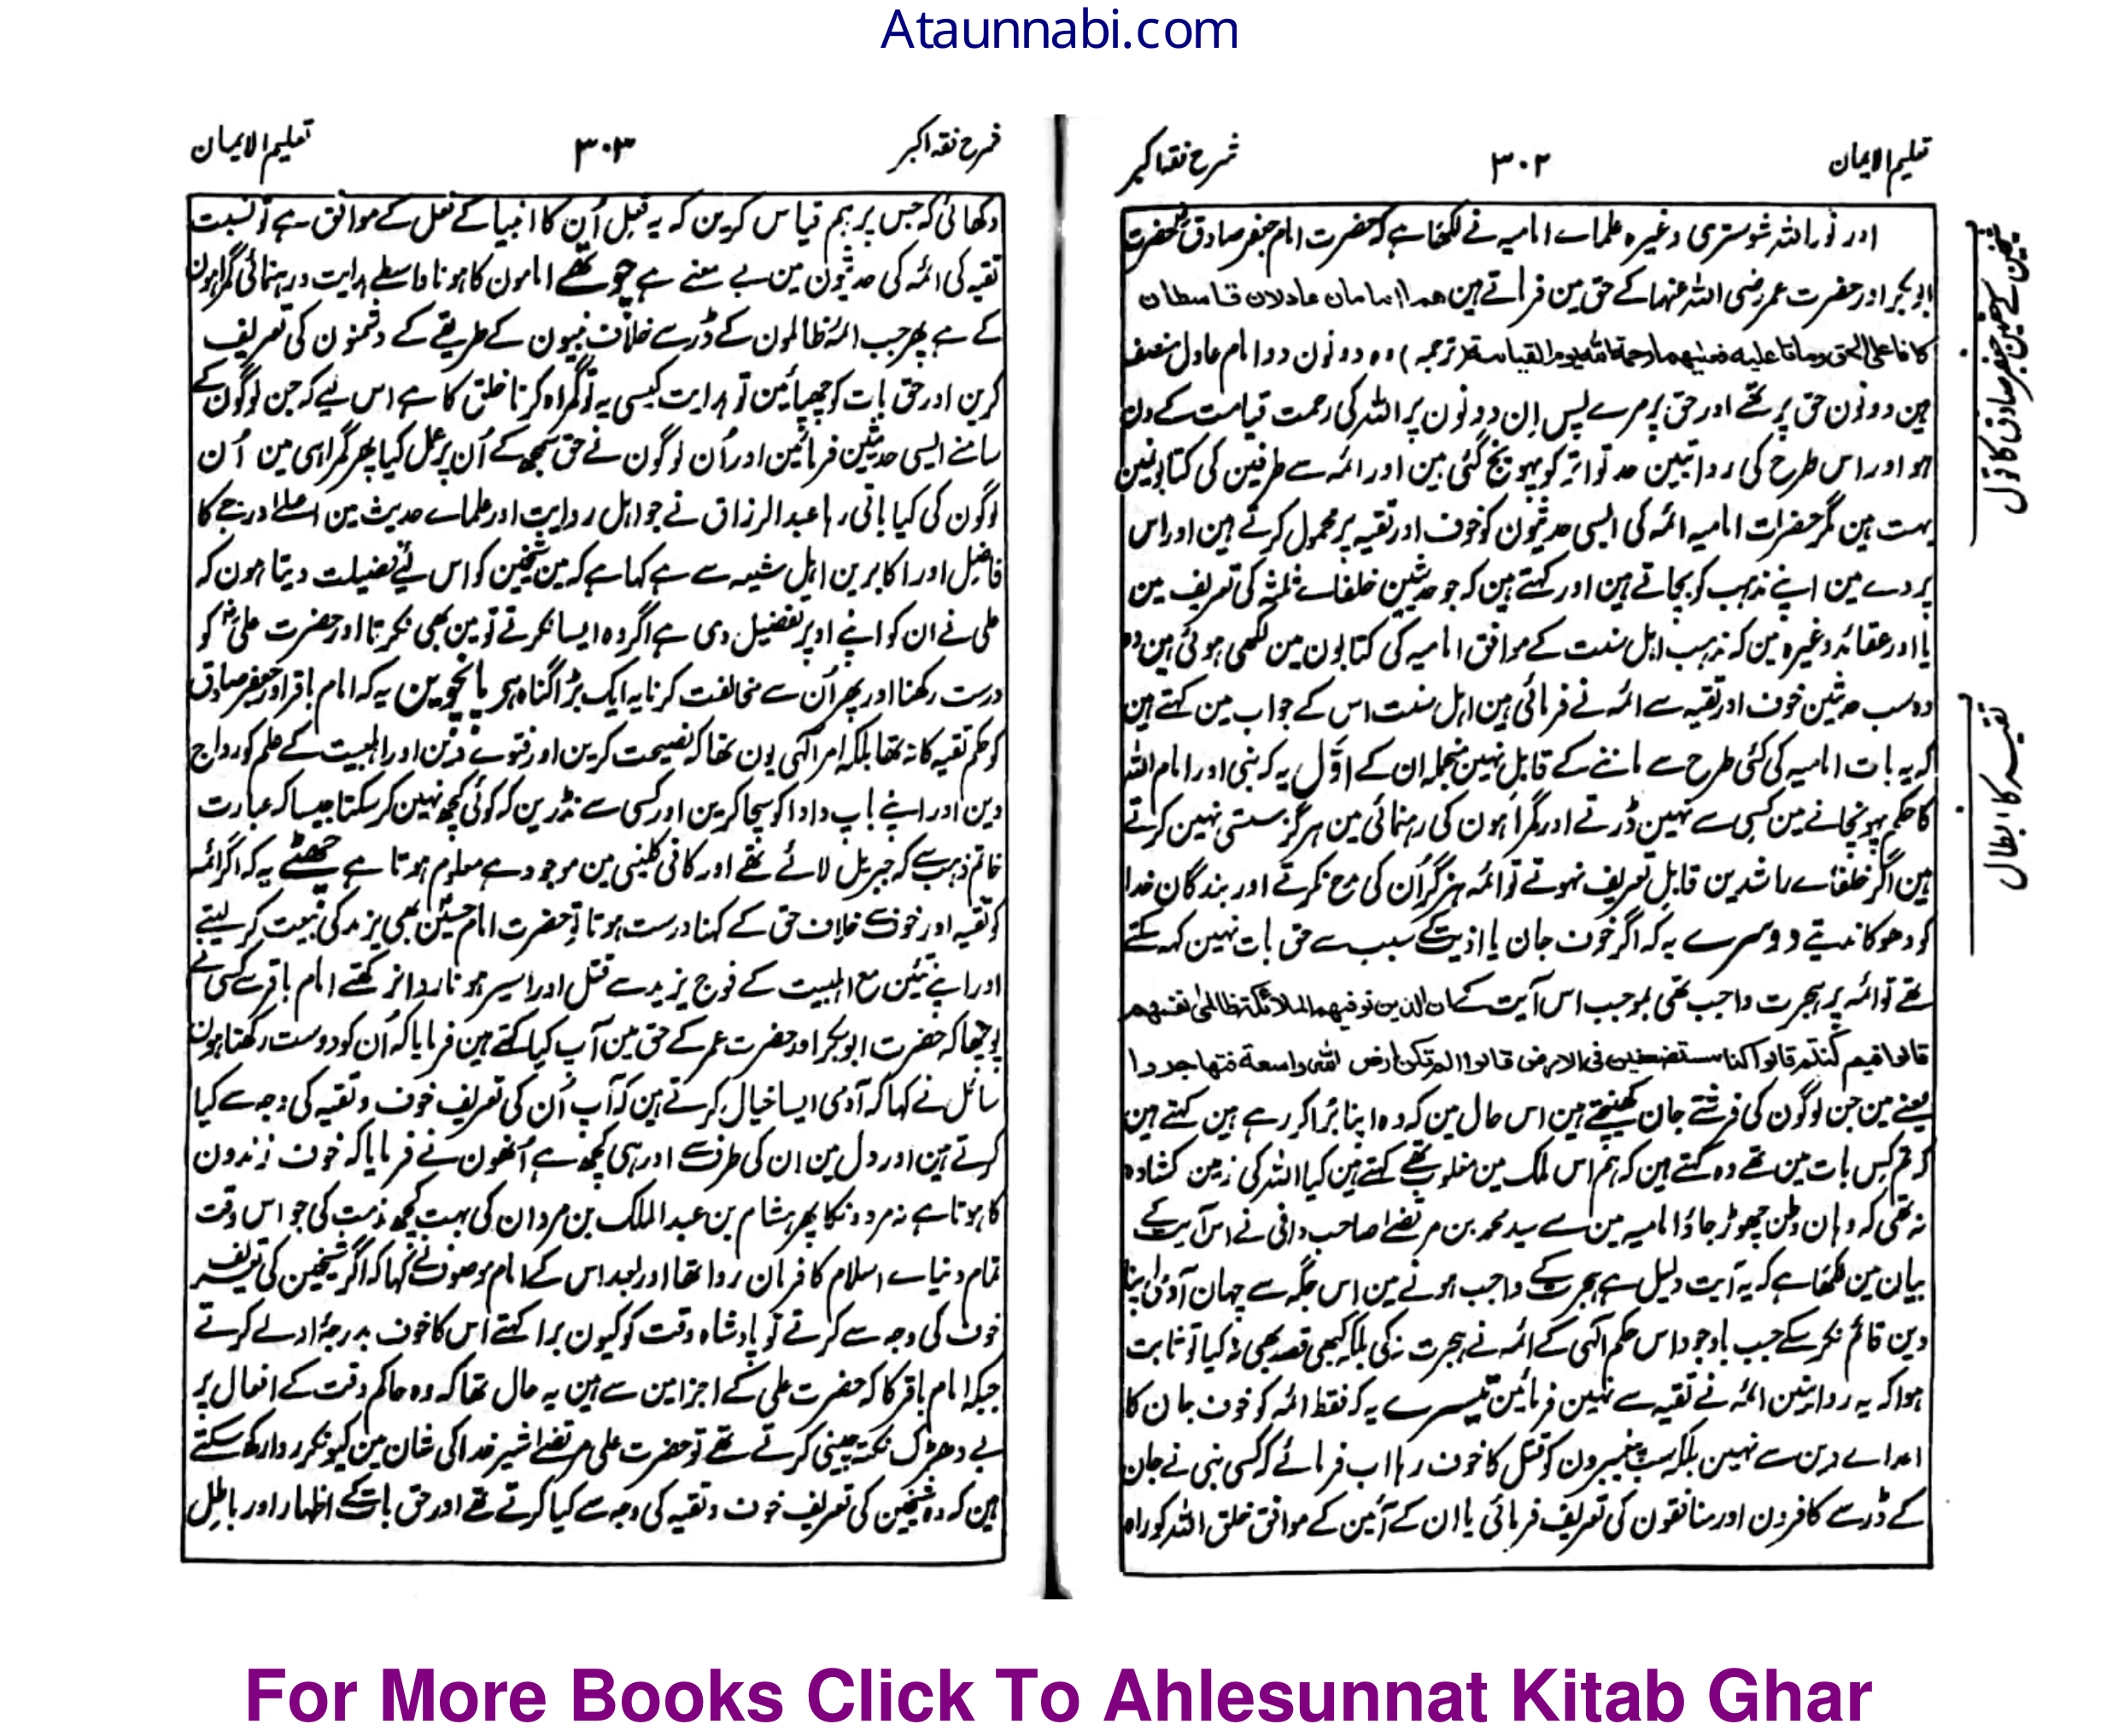 Ataunnabi.com
تعلیم الایمان
۳۰۲
شرح فقہ اکبر
اور نور اللہ شوستری وغیرہ علماے امامیہ نے لکھا ہے کہ حضرت امام جعفر صادق حضرت
ابو بکر اور حضرت عمر رضی اللہ عنہما کے حق مین فرماتے ہین هما امامان عادلان قاسطان
كانا على الحق وماتا عليه فعليهما رحمة الله يوم القيامة (ترجمہ) وہ دونون دو امام عادل منصف
ہین دونون حق پر تھے اور حق پر مرے پس اِن دونون پر اللہ کی رحمت قیامت کے دن
ہو اور اس طرح کی روایتین حد تواتر کو پہونچ گئی ہین اور ائمہ سے طرفین کی کتابونمین
بہت ہین مگر حضرات امامیہ ائمہ کی ایسی حدیثون کو خوف اور تقیہ پر محمول کرتے ہین اور اس
پردے مین اپنے مذہب کو بچاتے ہین اور کہتے ہین کہ جو حدیثین خلفاے ثلثہ کی تعریف مین
یا اور عقائد وغیرہ مین کہ مذہب اہل سنت کے موافق امامیہ کی کتابون مین لکھی ہوئی ہین وہ
وہ سب حدیثین خوف اور تقیہ سے ائمہ نے فرمائی ہین اہل سنت اس کے جواب مین کہتے ہین
کہ یہ بات امامیہ کی کئی طرح سے ماننے کے قابل نہین منجملہ ان کے اوّل یہ کہ نبی اور امام اللہ
کا حکم پہونچانے مین کسی سے نہین ڈرتے اور گمراہون کی رہنمائی مین ہرگز سستی نہین کرتے
ہین اگر خلفاے راشدین قابل تعریف نہوتے تو ائمہ ہرگز اُن کی مدح نکرتے اور بندگان خدا
کو دھوکا ندیتے دوسرے یہ کہ اگر خوف جان یا اذیت کے سبب سے حق بات نہین کہہ سکتے
تھے تو ائمہ پر ہجرت واجب تھی بموجب اس آیت کے ان الذين توفيهم الملائكة ظالمى انفسهم
قالوا فيم كنتم قالوا كنا مستضعفين فى الارض قالوا الم تكن ارض الله واسعة فتهاجروا
یعنے مین جن لوگون کی فرشتے جان کھینچتے ہین اس حال مین کہ وہ اپنا بُرا کر رہے ہین کہتے ہین
کہ تم کس بات مین تھے وہ کہتے ہین کہ ہم اس ملک مین مغلوب تھے کہتے ہین کیا اللہ کی زمین کشادہ
نہ تھی کہ وہان وطن چھوڑ جاؤ امامیہ مین سے سید محمد بن مرتضےٰ صاحب وافی نے اس آیت کے
بیان مین لکھا ہے کہ یہ آیت دلیل ہے ہجرت کے واجب ہونے مین اس جگہ سے جہان آدمی اپنا
دین قائم نکر سکے جب باوجود اس حکم الٰہی کے ائمہ نے ہجرت نہ کی بلکہ کبھی قصد بھی نہ کیا تو ثابت
ہوا کہ یہ روایتین ائمہ نے تقیہ سے نہین فرمائین تیسرے یہ کہ فقط ائمہ کو خوف جان کا
اعداے دین سے نہین بلکہ سب پیغمبرون کو قتل کا خوف رہا اب فرمائے کہ کسی نبی نے جان
کے ڈر سے کافرون اور منافقون کی تعریف فرمائی یا ان کے آئین کے موافق خلق اللہ کو راہ
شیخین کے حق مین جعفر صادق کا قول
تقیہ کا ابطال
شرح فقہ اکبر
۳۰۳
تعلیم الایمان
دکھائی کہ جس پر ہم قیاس کرین کہ یہ فعل اُن کا انبیا کے فعل کے موافق ہے تو نسبت
تقیہ کی ائمہ کی حدیثون مین بے معنے ہے چوتھے امامون کا ہونا واسطے ہدایت و رہنمائی گمراہون
کے ہے پھر جب ائمہ ظالمون کے ڈر سے خلاف نبیون کے طریقے کے دشمنون کی تعریف
کرین اور حق بات کو چھپائین تو ہدایت کیسی یہ تو گمراہ کرنا خلق کا ہے اس لیے کہ جن لوگون کے
سامنے ایسی حدیثین فرمائین اور اُن لوگون نے حق سمجھ کے اُن پر عمل کیا پھر گمراہی مین اُن
لوگون کی کیا باقی رہا عبد الرزاق نے جو اہل روایت اور علماے حدیث مین اعلےٰ درجے کا
فاضل اور اکابرین اہل شیعہ سے ہے کہا ہے کہ مین شیخین کو اس لئے فضیلت دیتا ہون کہ
علی نے ان کو اپنے اوپر تفضیل دی ہے اگر وہ ایسا نکرتے تو مین بھی نکرتا اور حضرت علیؓ کو
درست رکھنا اور پھر اُن سے مخالفت کرنا یہ ایک بڑا گناہ ہے پانچوین یہ کہ امام باقر اور جعفر صادق
کو حکم تقیہ کا نہ تھا بلکہ امر الٰہی یون تھا کہ نصیحت کرین اور فتوے دین اور اہلبیت کے علم کو رواج
دین اور اپنے باپ دادا کو سچا کرین اور کسی سے نڈرین کہ کوئی کچھ نہین کر سکتا جیسا کہ عبارت
خاتم ذہب سے کہ جبریل لائے تھے اور کافی کلینی مین موجود ہے معلوم ہوتا ہے چھٹے یہ کہ اگر ائمہ
کو تقیہ اور خوف سے خلاف حق کے کہنا درست ہوتا تو حضرت امام حسینؓ بھی یزید کی بیعت کر لیتے
اور اپنے تئین مع اہلبیت کے فوج یزید سے قتل اور اسیر ہونا روا نہ رکھتے امام باقر سے کسی نے
پوچھا کہ حضرت ابو بکر اور حضرت عمر کے حق مین آپ کیا کہتے ہین فرمایا کہ اُن کو دوست رکھتا ہون
سائل نے کہا کہ آدمی ایسا خیال کرتے ہین کہ آپ اُن کی تعریف خوف و تقیہ کی وجہ سے کیا
کرتے ہین اور دل مین ان کی طرف سے اور ہی کچھ ہے اُنھون نے فرمایا کہ خوف زندون
کا ہوتا ہے نہ مردونکا پھر ہشام بن عبد الملک بن مروان کی بہت کچھ مذمت کی جو اس وقت
تمام دنیاے اسلام کا فرمان روا تھا اور بعد اس کے امام موصوف نے کہا کہ اگر شیخین کی تعریف
خوف کی وجہ سے کرتے تو پادشاہ وقت کو کیون برا کہتے اُس کا خوف بدرجۂ اولےٰ کرتے
جبکہ امام باقر کا کہ حضرت علی کے اجزا مین سے ہین یہ حال تھا کہ وہ حاکم وقت کے افعال پر
بے دھڑک نکتہ چینی کرتے تھے تو حضرت علی مرتضےٰ شیر خدا کی شان مین کیونکر روا رکھ سکتے
ہین کہ وہ شیخین کی تعریف خوف و تقیہ کی وجہ سے کیا کرتے تھے اور حق بات کے اظہار اور باطل
For More Books Click To Ahlesunnat Kitab Ghar